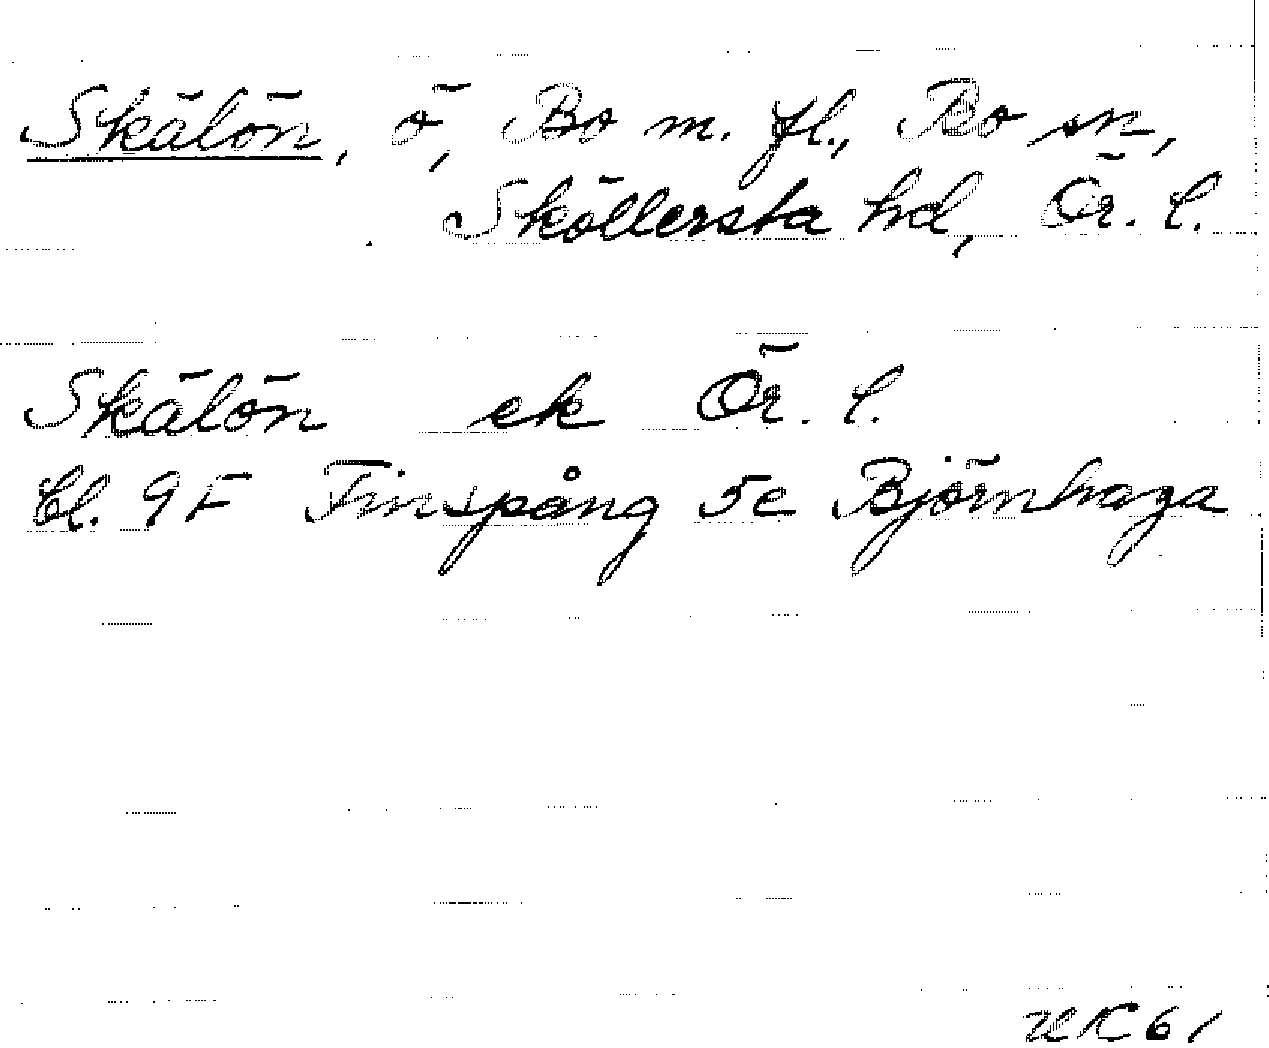 Skälön, ö, Bo m. fl., Bo sn,
Sköllersta hd, Ör. l.
Skälön ek Ör. l.
bl. 9F Finspång 5c Björnhaga
UK 61